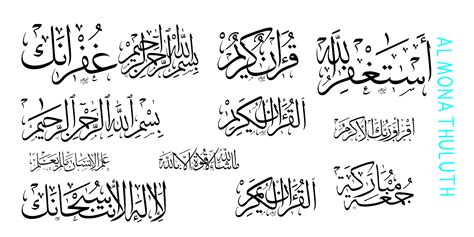 أستغفر الله
قرآن كريم
بسم الله الرحمن الرحيم
غفرانك
اقرأ وربك الأكرم
القرآن الكريم
بسم الله الرحمن الرحيم
ما شاء الله لا قوة إلا بالله
علم الإنسان ما لم يعلم
جمعة مباركة
القرآن الكريم
لا إله إلا أنت سبحانك
AL MONA THULUTH